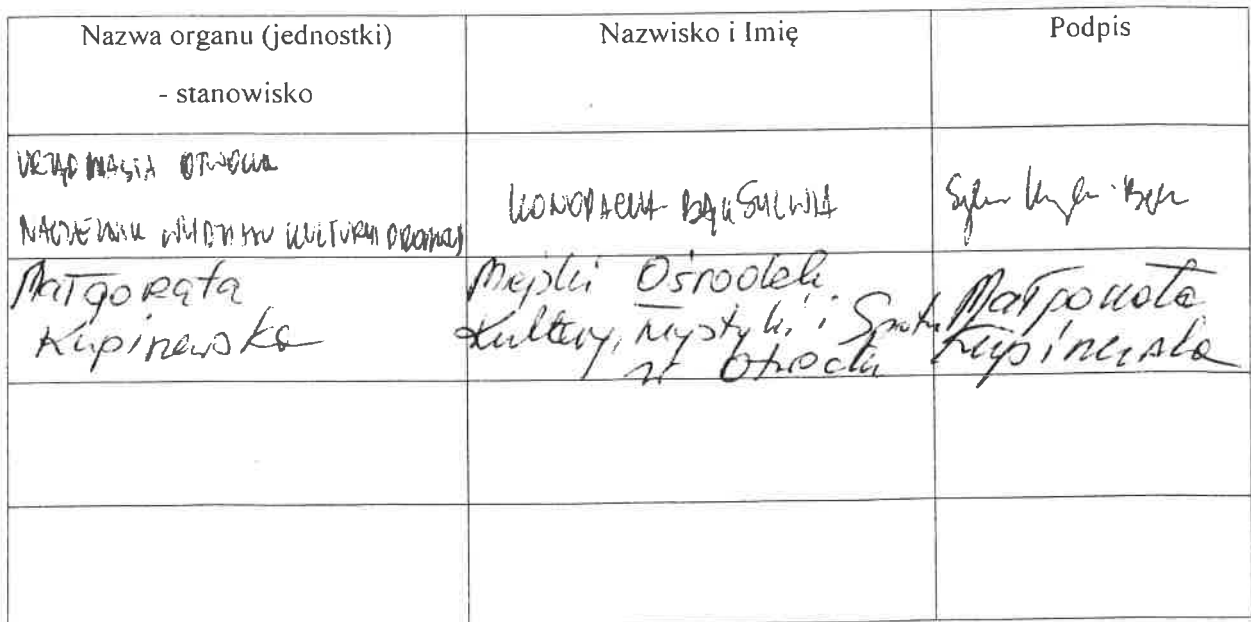 Nazwa organu (jednostki)
- stanowisko
Nazwisko i Imię
Podpis
URZĄD MIASTA OTWOCKA
NACZELNIK WYDZIAŁU KULTURY I PROMOCJI
KONOPACKA BĄK SYLWIA
Małgorzata
Kupinewska
Miejski Ośrodek
Kultury, Turystyki i Sportu
w Otwocku
Małgorzata
Kupinewska